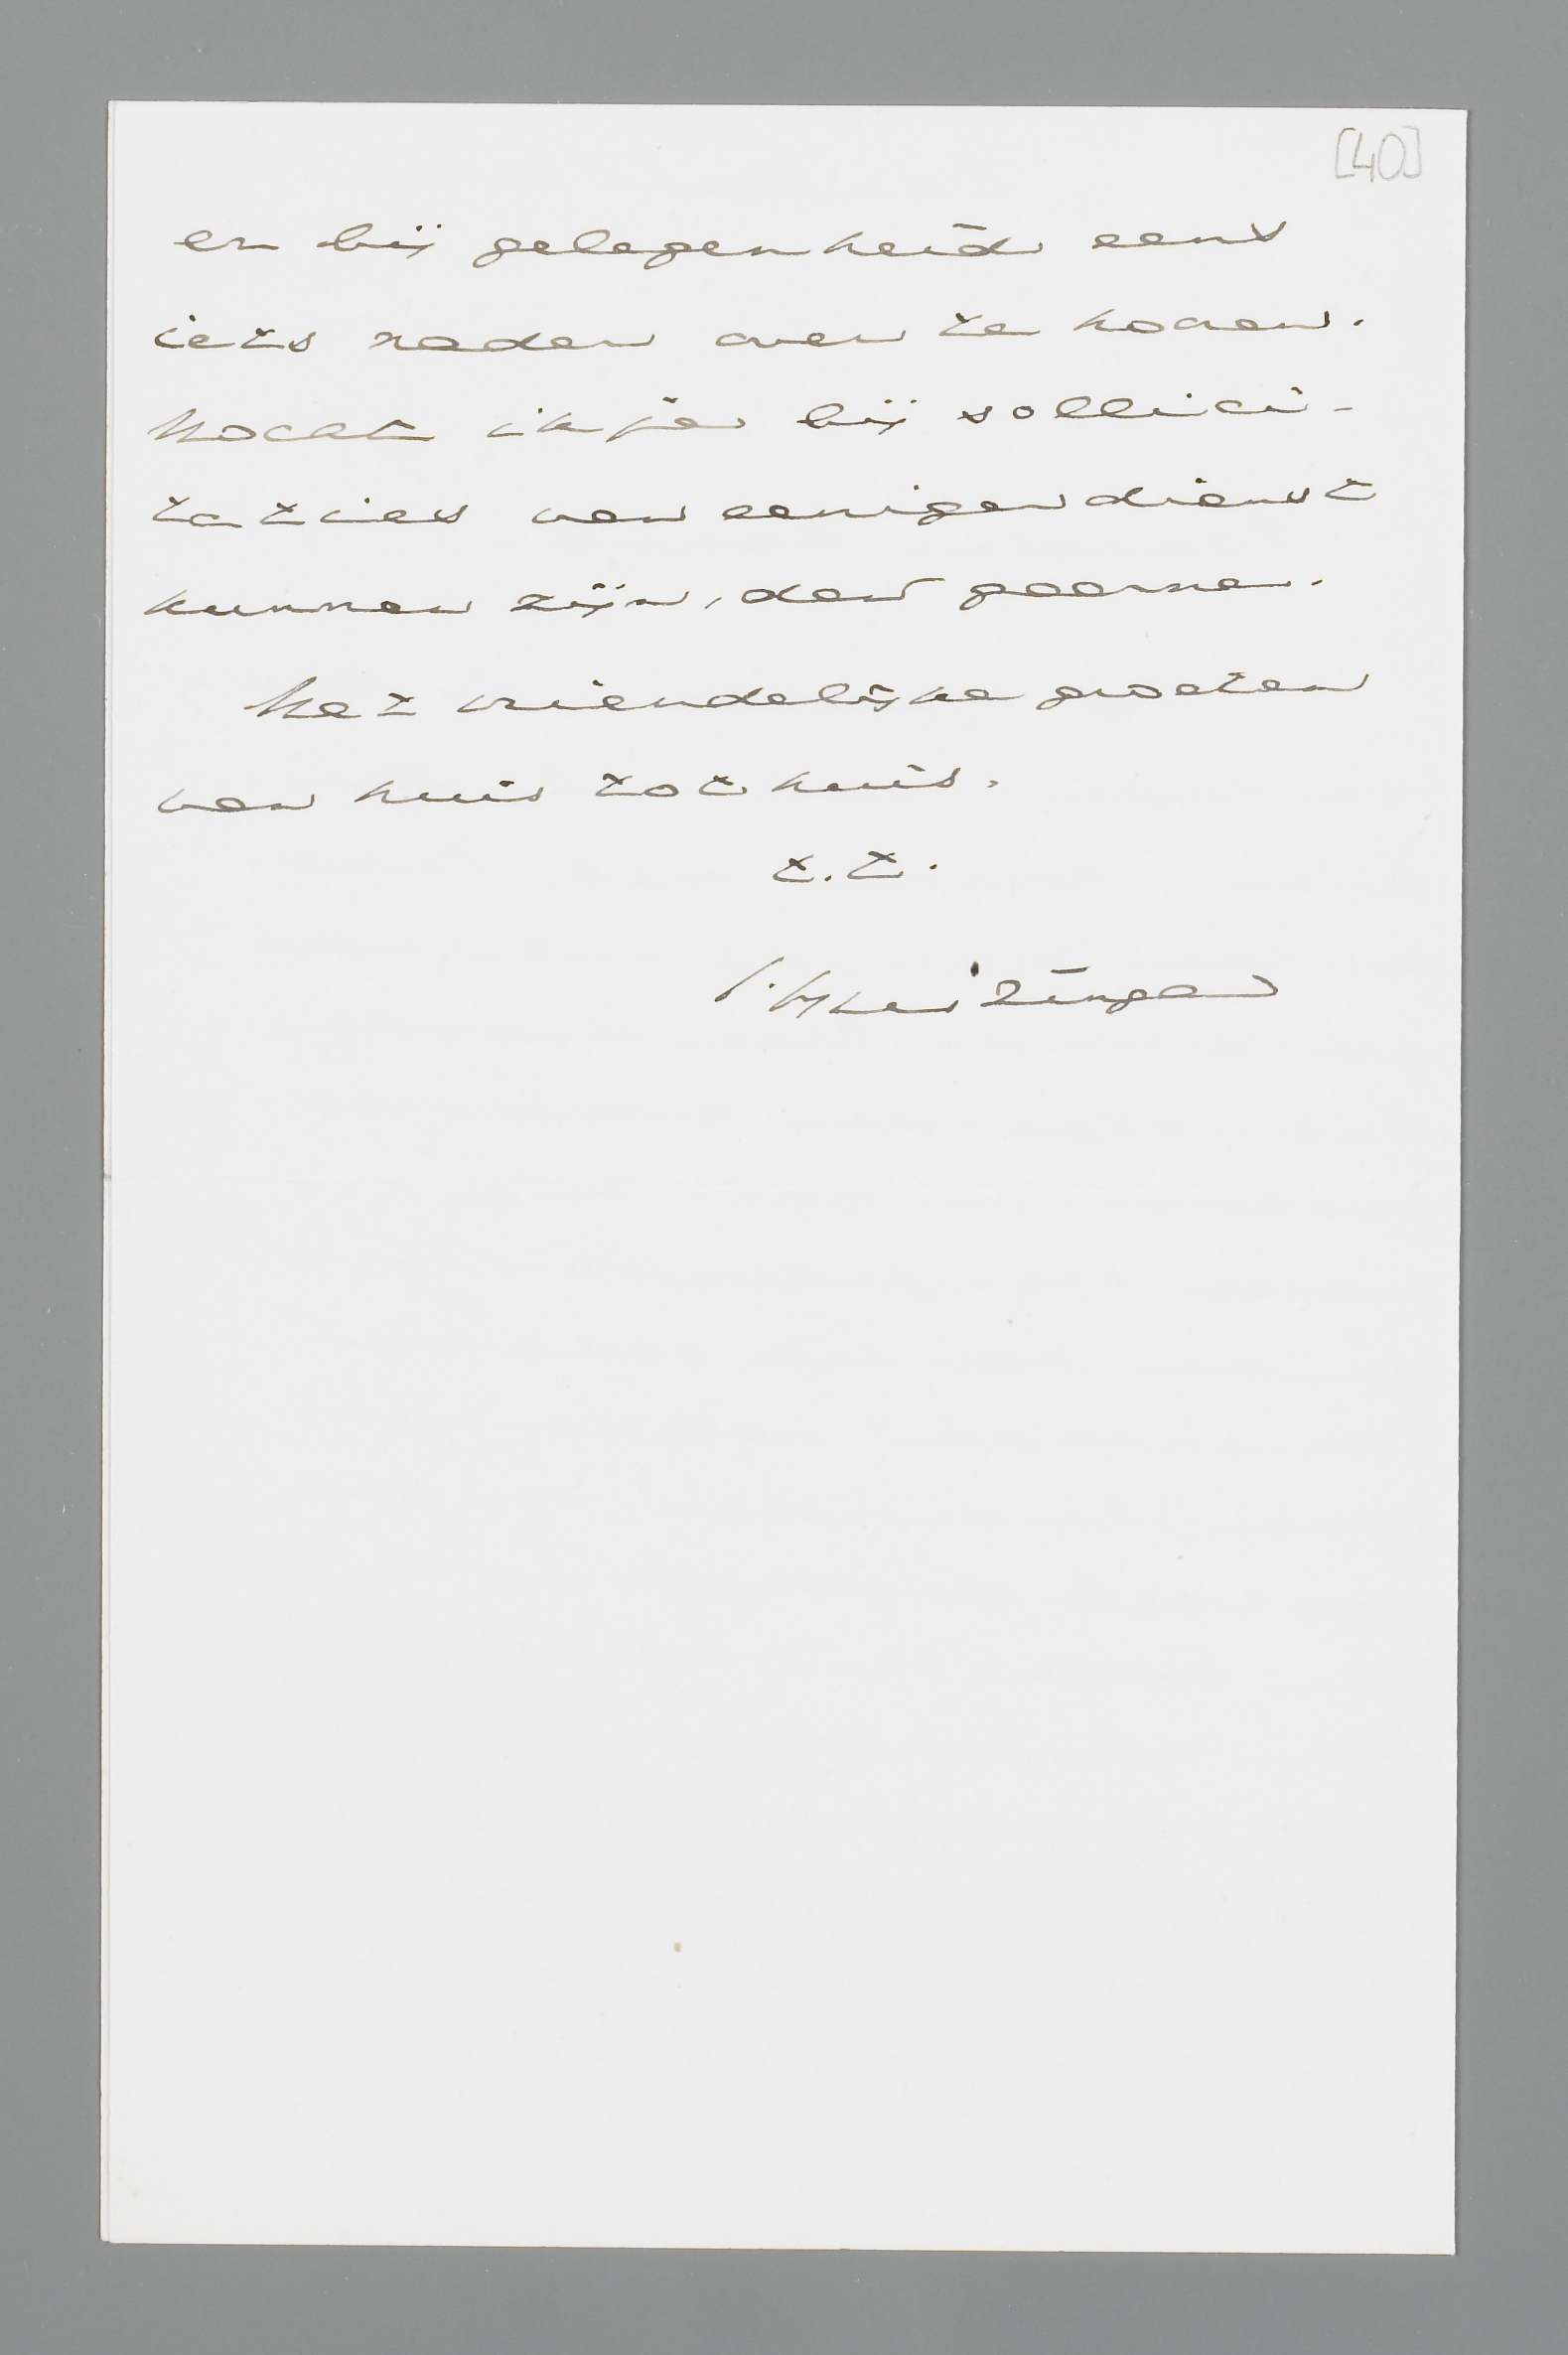 [40]
er bij gelegenheid eens
iets nader over te horen.
Mocht ik je bij sollici-
taties van eenigen dienst
kunnen zijn, dan gaarne.
Met vriendelijke groeten
van huis tot huis,
t.t.
J. Huizinga